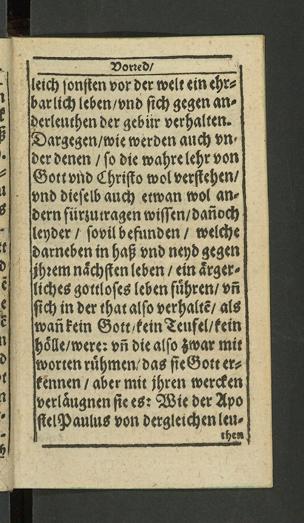 Vorred/
leich sonsten vor der welt ein ehr-
barlich leben/vnd sich gegen an-
derleuthen der gebür verhalten.
Dargegen/wie werden auch vn-
der denen / so die wahre lehr von
Gott vnd Christo wol verstehen/
vnd dieselb auch etwan wol an-
dern fürzutragen wissen/dañoch
leyder / sovil befunden / welche
darneben in haß vnd neyd gegen
jhrem nächsten leben / ein ärger-
liches gottloses leben führen/ vñ
sich in der that also verhaltẽ/ als
wañ kein Gott/kein Teufel/kein
hölle/were: vñ die also zwar mit
worten rühmen/das sie Gott er-
kennen / aber mit jhren wercken
verläugnen sie es: Wie der Apo
stel Paulus von dergleichen leu-
then